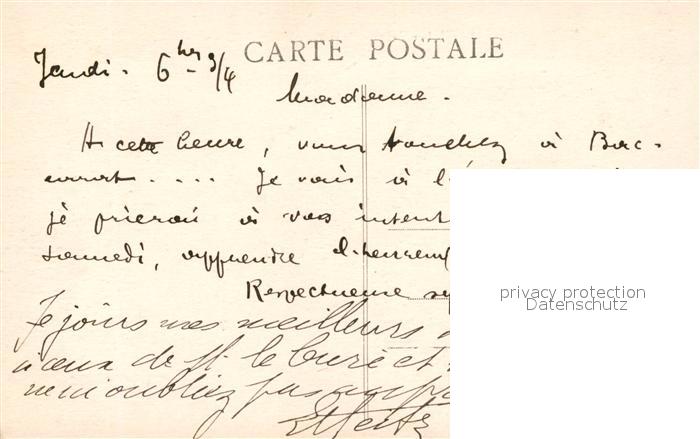 CARTE POSTALE
Jeudi - 6 hrs 3/4
Madame -
A cette heure, vous touchez à Bac-
carat . . . . Je vais à l'
je prierai à vos intent
samedi, apprendre d'heureu
Respectueuse
Je joins mes meilleurs
à ceux de M. le Curé et
ne m'oubliez pas
privacy protection
Datenschutz